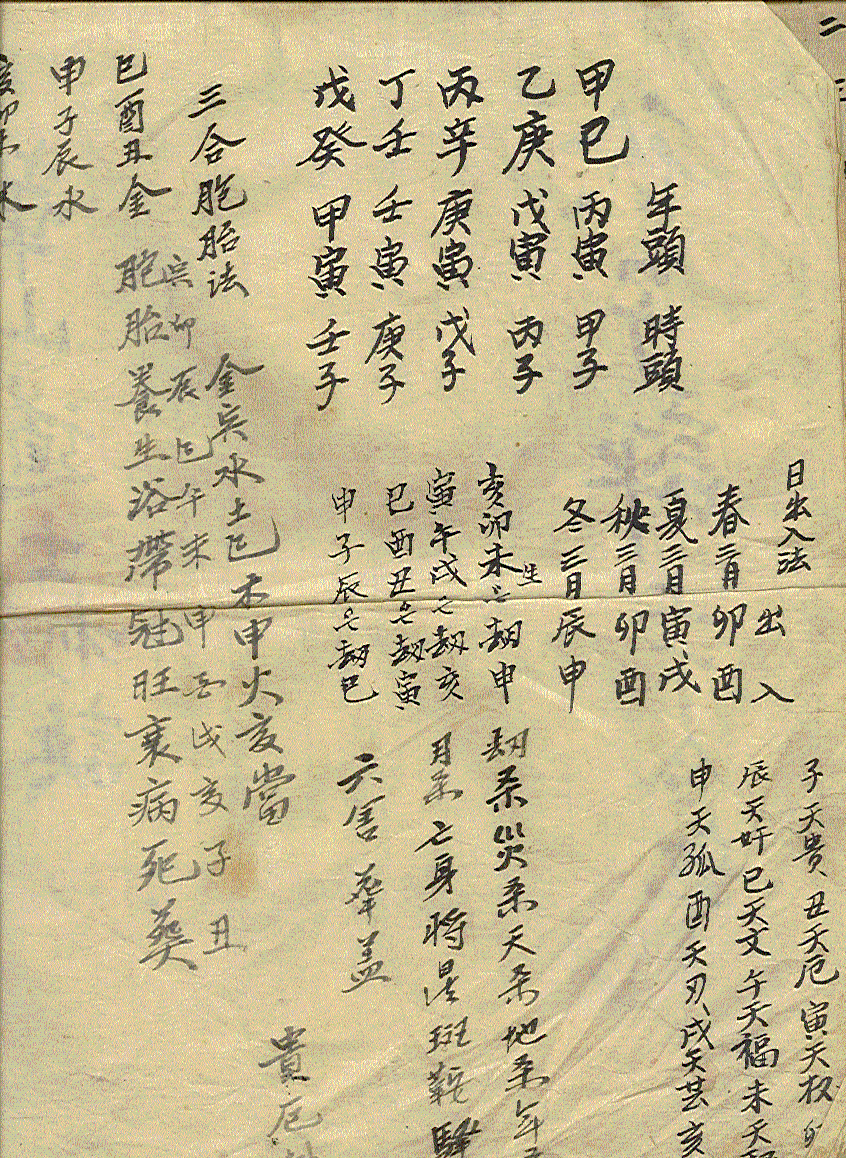 年頭 時頭
甲巳 丙寅 甲子
乙庚 戊寅 丙子
丙辛 庚寅 戊子
丁壬 壬寅 庚子
戊癸 甲寅 壬子
三合胞胎法
巳酉丑金
申子辰水
日出入法
出 入
春三月 卯 酉
夏三月 寅 戌
秋三月 卯 酉
冬三月 辰 申
亥卯未生亡劫申
寅午戌亡劫亥
巳酉丑亡劫寅
申子辰亡劫巳
金寅水土巳木申火亥當
寅卯辰巳午未申酉戌亥子丑
胞胎養生浴帶冠旺衰病死葬
子天貴 丑天厄 寅天权
辰天奸 巳天文 午天福 未天
申天孤 酉天刃 戌天芸 亥
劫杀災杀天杀地杀年
月杀亡身将星班鞍驛
六害華盖
貴厄